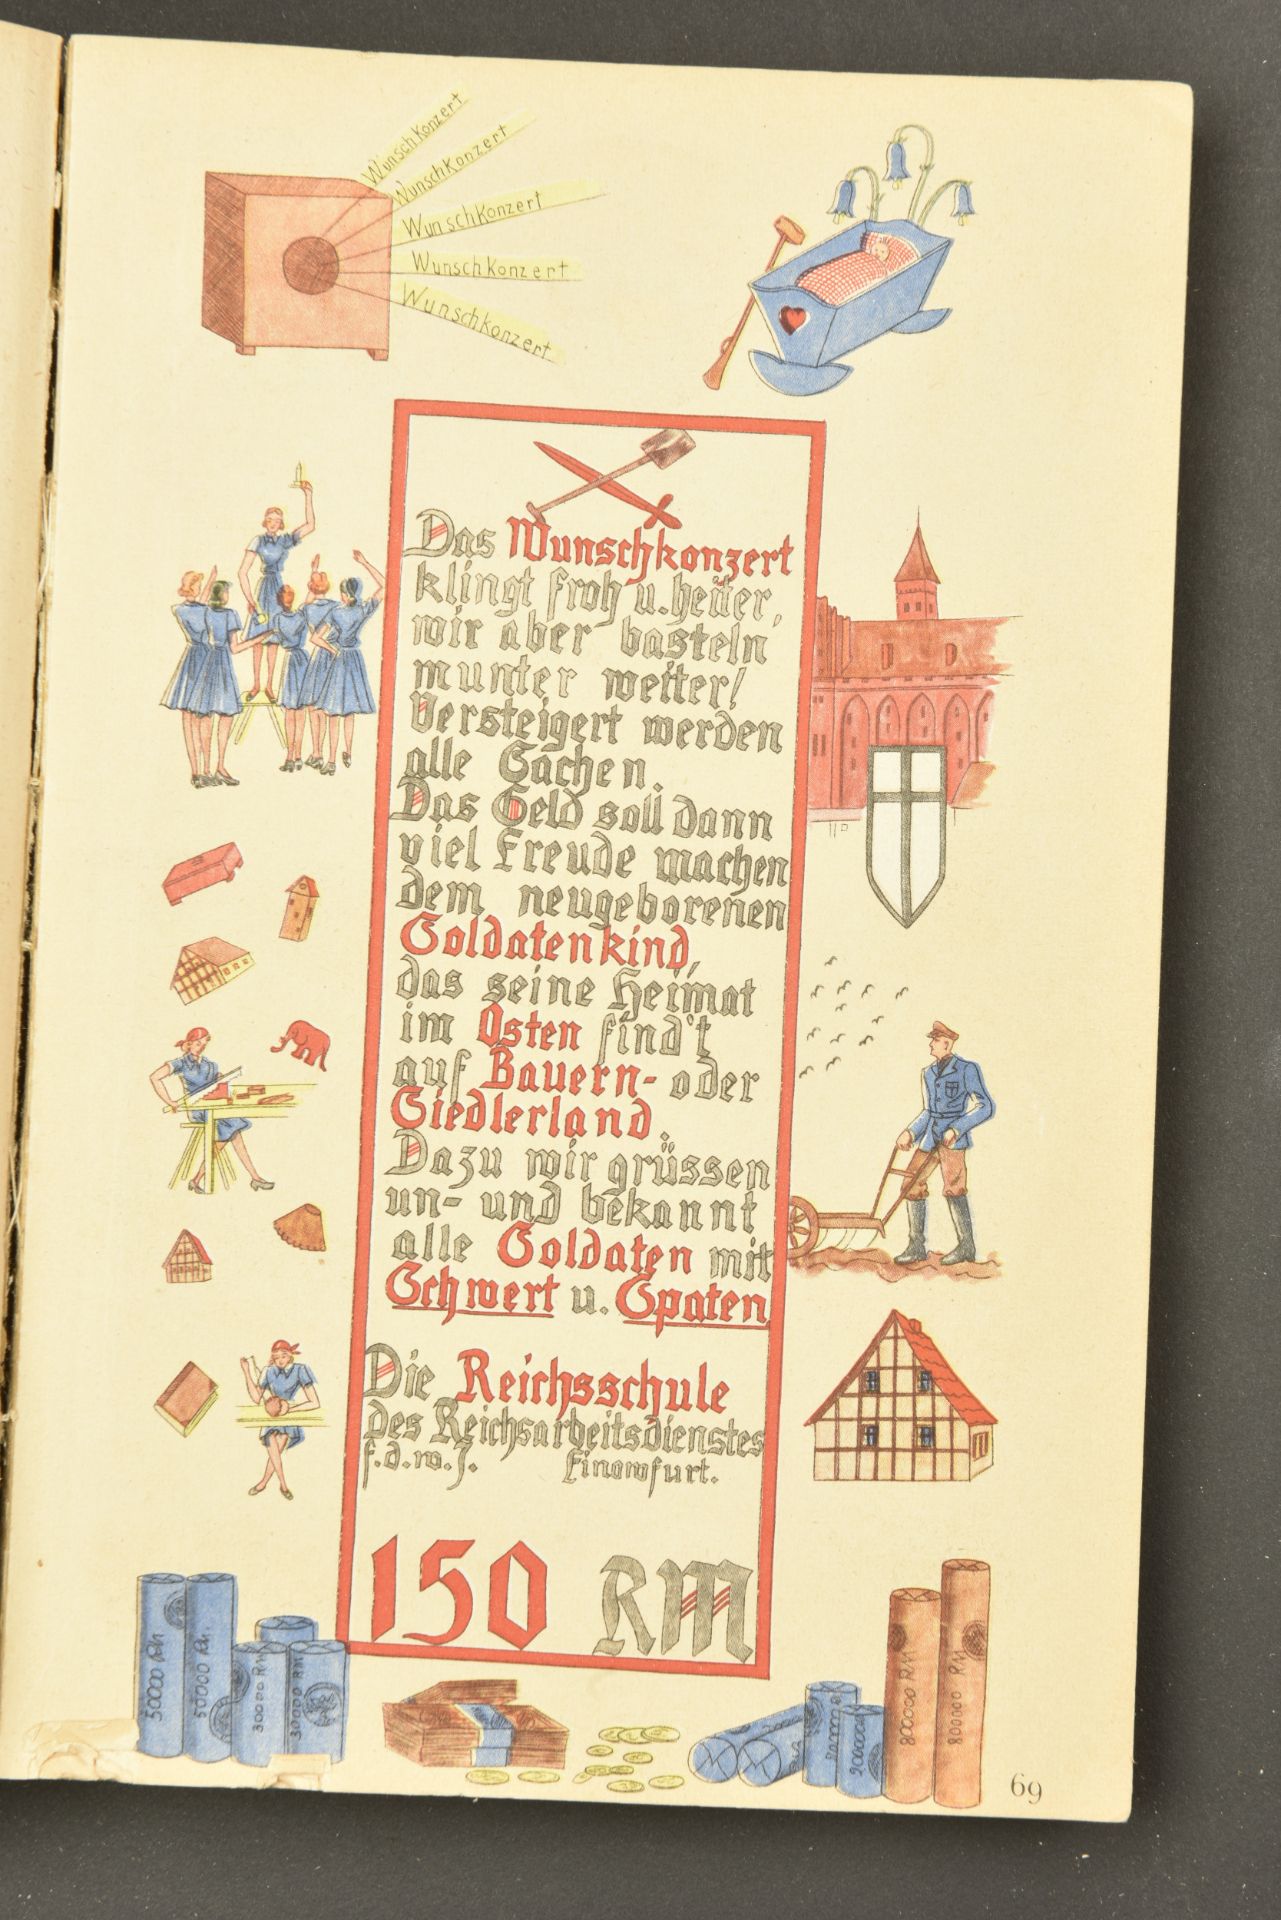 Wunschkonzert
Wunschkonzert
Wunschkonzert
Wunschkonzert
Wunschkonzert
Das Wunschkonzert
klingt froh u. heiter,
wir aber basteln
munter weiter!
Versteigert werden
alle Sachen.
Das Geld soll dann
viel Freude machen
dem neugeborenen
Soldatenkind,
das seine Heimat
im Osten find't
auf Bauern- oder
Siedlerland.
Dazu wir grüssen
un- und bekannt
alle Soldaten mit
Schwert u. Spaten.
Die Reichsschule
des Reichsarbeitsdienstes
f.d.w.J. Finowfurt.
150 RM
50000 RM
50000 RM
30000 RM
30000 RM
800000 RM
800000 RM
69